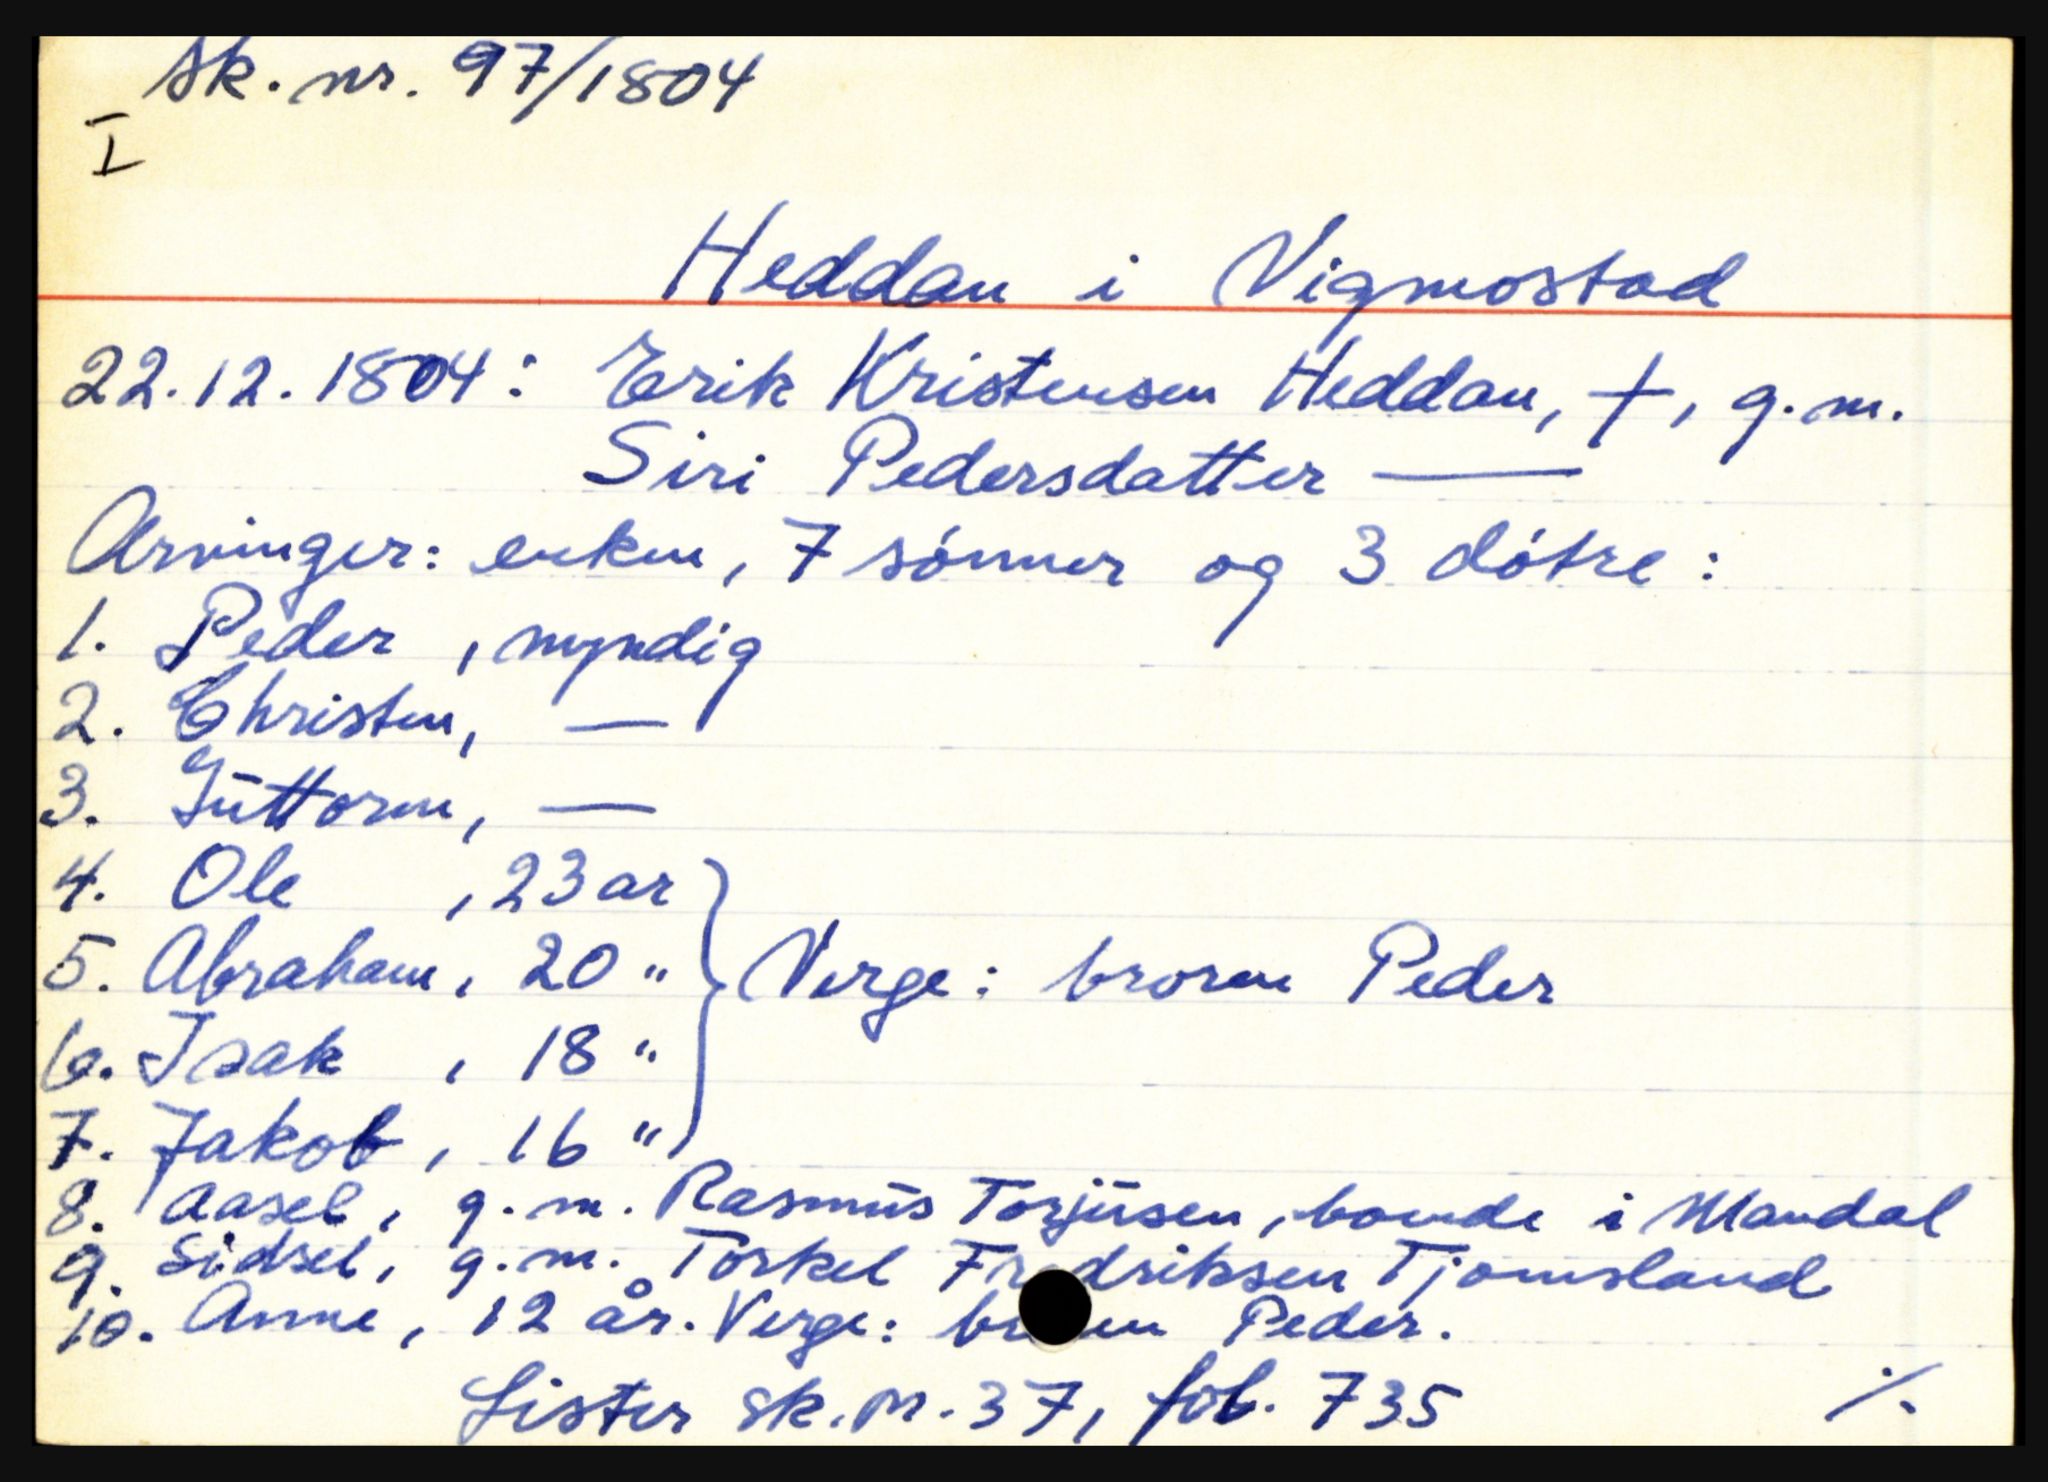 Sk. nr. 97/1804
I
Heddan i Vigmostad
22.12.1804: Erik Kristensen Heddan, †, g.m.
Siri Pedersdatter —
Arvinger: enken, 7 sónner og 3 dótre:
1. Peder , myndig
2. Christen, —
3. Guttorm, —
4. Ole , 23 år
5. Abraham, 20 "
Verge: broren Peder
6. Isak , 18 "
7. Jakob, 16 "
8. Aasel, g.m. Rasmus Torjusen, boende i Mandal
9. Sidsel, g.m. Torkel Fredriksen Tjomsland
10. Anne, 12 år. Verge: broren Peder.
Lister sk.pr. 37, fol. 735
./.